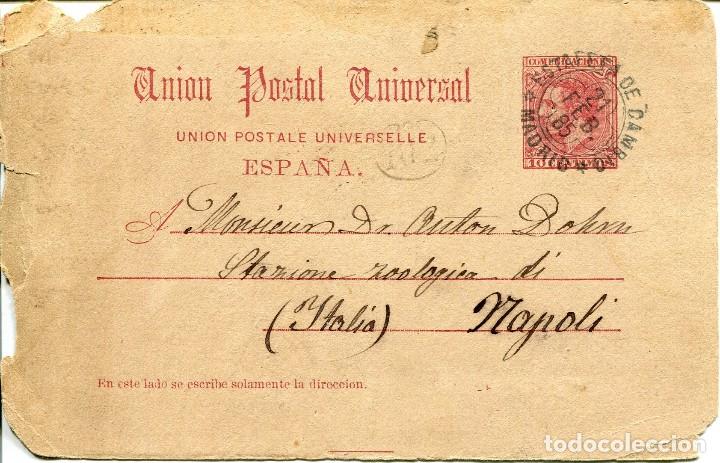 Union Postal Universal
UNION POSTALE UNIVERSELLE
ESPAÑA.
COMUNICACIONES
10 CENTIMOS
ESTAFETA DE CAMBIO
21
FEB.
85
MADRID
A Monsieur Dr. Anton Dohrn
Stazione zoologica di
(Italia) Napoli
En este lado se escribe solamente la direccion.
todocoleccion.net